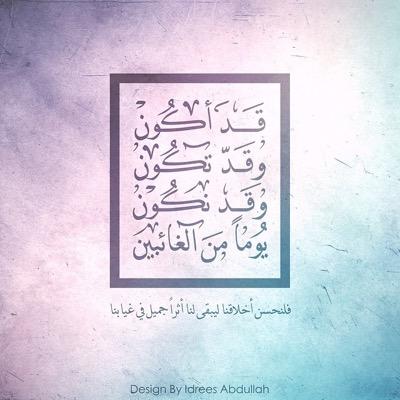 قَدَ أكُون
وقَدّ تكُون
وقَد نكُون
يُوماً مَن الغَائبين
فلنحسن أخلاقنا ليبقى لنا أثراً جميل في غيابنا
Design By Idrees Abdullah